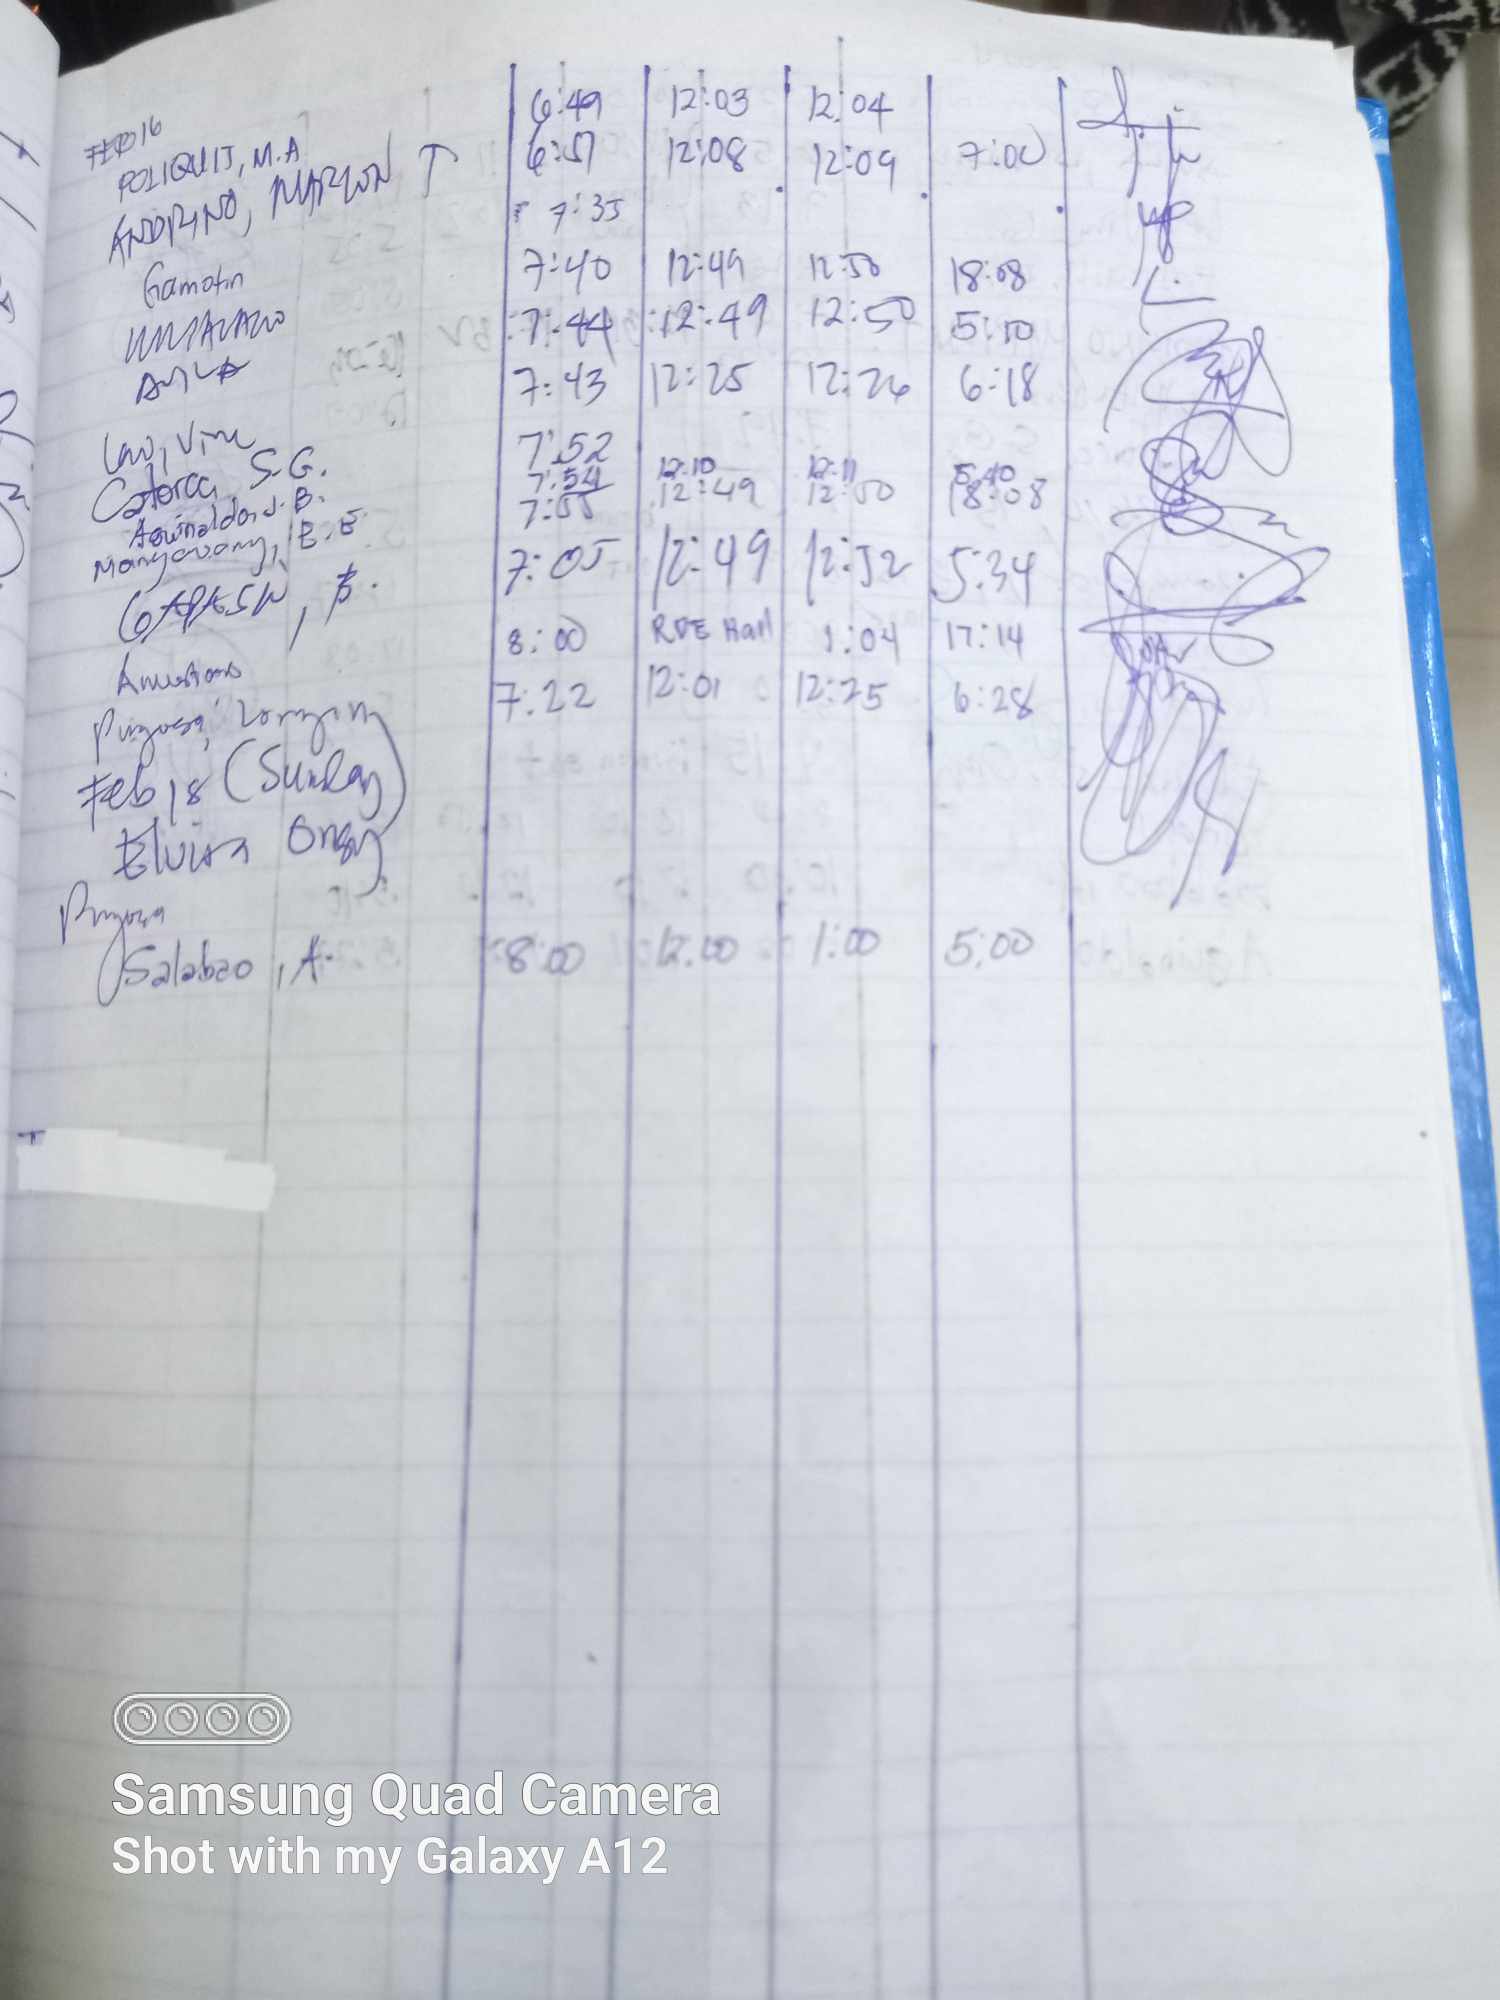 FEB 16
POLIQUIT, M.A 6:49 12:03 12:04
ANDRINO, MARLON T 6:51 12:08 12:09 7:00
7:35
Gamotin 7:40 12:49 12:50 18:08
7:44 12:49 12:50 5:10
7:43 12:25 12:26 6:18
7:52
Catorce, S.G. 7:54 12:10 12:11 5:40
Aguinaldo J.B. 7:55 12:49 12:50 18:08
B.E 7:05 12:49 12:52 5:34
GAPASIN, B.
8:00 RDE Hall 1:04 17:14
7:22 12:01 12:25 6:28
Feb 18 (Sunday)
Elvira Ongy
Salabao, A. 8:00 12:00 1:00 5:00
Samsung Quad Camera
Shot with my Galaxy A12